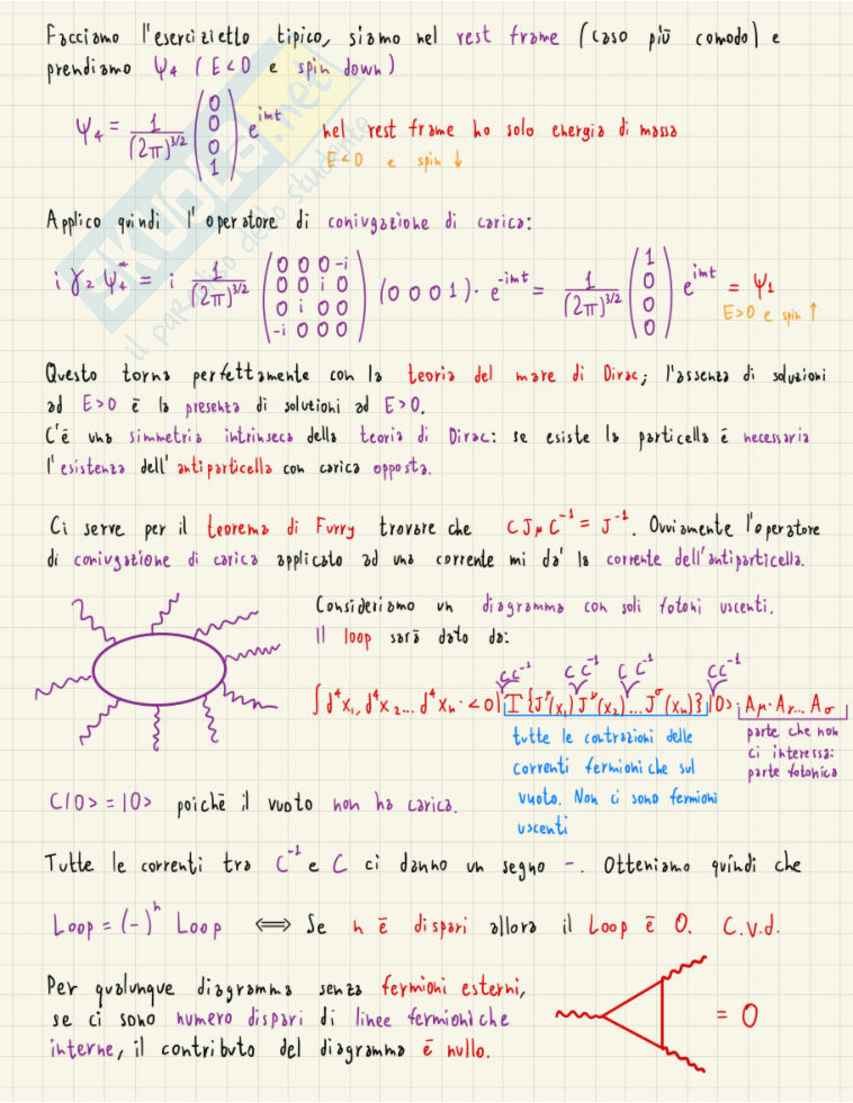 Facciamo l'esercizietto tipico, siamo nel rest frame (caso più comodo) e
prendiamo Ψ₄ (E<0 e spin down)
Ψ₄ = 1/(2π)^{3/2} (0 0 0 1) e^{imt} nel rest frame ho solo energia di massa
E<0 e spin ↓
Applico quindi l'operatore di coniugazione di carica:
i γ₂ Ψ₄* = i 1/(2π)^{3/2} (0 0 0 -i / 0 0 i 0 / 0 i 0 0 / -i 0 0 0) (0 0 0 1) · e^{-imt} = 1/(2π)^{3/2} (1 0 0 0) e^{imt} = Ψ₁
E>0 e spin ↑
Questo torna perfettamente con la teoria del mare di Dirac; l'assenza di soluzioni
ad E>0 è la presenza di soluzioni ad E>0.
C'è una simmetria intrinseca della teoria di Dirac: se esiste la particella è necessaria
l'esistenza dell'antiparticella con carica opposta.
Ci serve per il teorema di Furry trovare che C J_μ C^{-1} = J^{-1}. Ovviamente l'operatore
di coniugazione di carica applicato ad una corrente mi da' la corrente dell'antiparticella.
Consideriamo un diagramma con soli fotoni uscenti.
Il loop sarà dato da:
CC^{-1} CC^{-1} CC^{-1} CC^{-1}
∫d⁴x₁, d⁴x₂... d⁴xₙ · <0| T{J^μ(x₁) J^ν(x₂)... J^σ(xₙ)} |0> · A_μ · A_ν... A_σ
tutte le contrazioni delle
correnti fermioniche sul
vuoto. Non ci sono fermioni
uscenti
parte che non
ci interessa:
parte fotonica
C|0> = |0> poichè il vuoto non ha carica.
Tutte le correnti tra C^{-1} e C ci danno un segno -. Otteniamo quindi che
Loop = (-)^n Loop ⟺ Se n è dispari allora il Loop è 0. C.v.d.
Per qualunque diagramma senza fermioni esterni,
se ci sono numero dispari di linee fermioniche
interne, il contributo del diagramma è nullo.
= 0